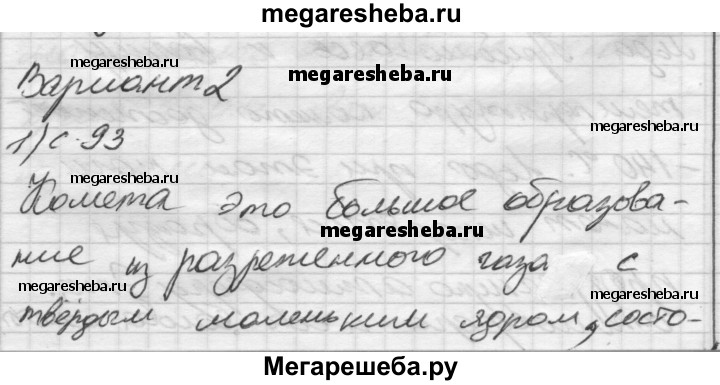 megaresheba.ru
megaresheba.ru
Вариант 2
megaresheba.ru
megaresheba.ru
1) с. 93
megaresheba.ru
megaresheba.ru
Комета это большое образова-
megaresheba.ru
ние из разреженного газа с
megaresheba.ru
megaresheba.ru
твёрдым маленьким ядром, состо-
Мегарешеба.ру